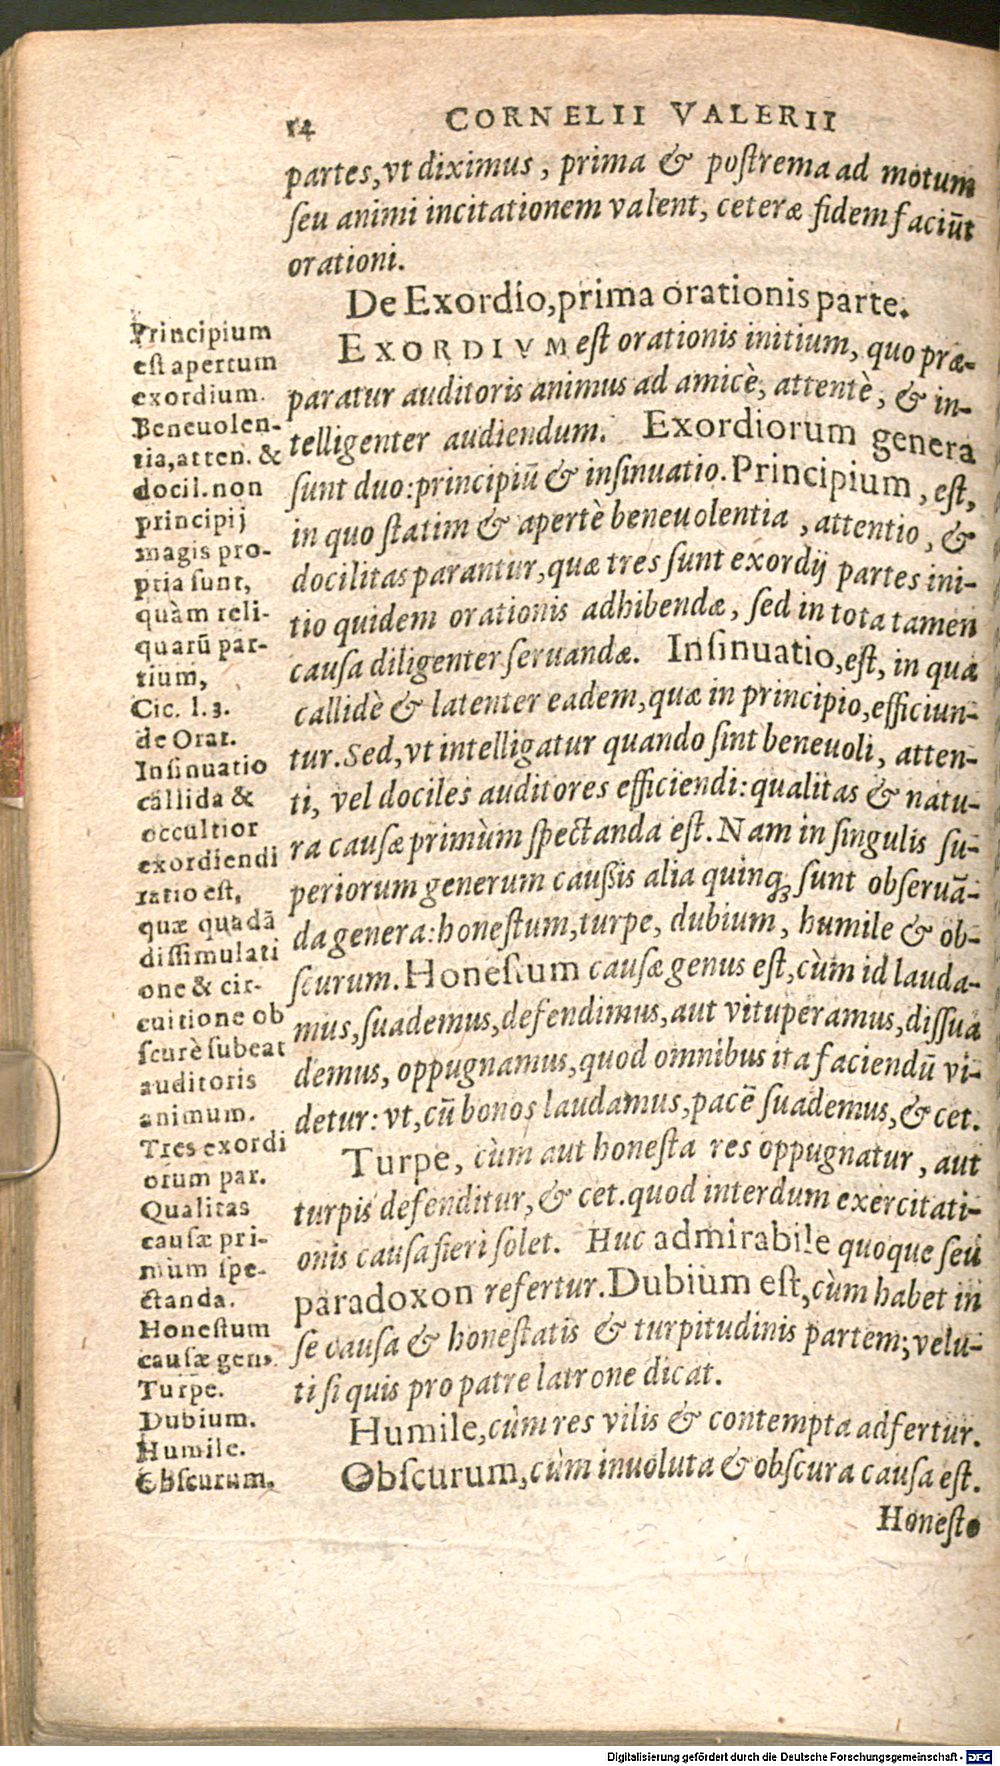 14 CORNELII VALERII
partes, vt diximus, prima & poſtrema ad motum
ſeu animi incitationem valent, ceteræ fidem faciūt
orationi.
De Exordio, prima orationis parte.
EXORDIVM eſt orationis initium, quo præ-
paratur auditoris animus ad amicè, attentè, & in-
telligenter audiendum. Exordiorum genera
ſunt duo: principiū & inſinuatio. Principium, eſt,
in quo ſtatim & apertè beneuolentia, attentio, &
docilitas parantur, quæ tres ſunt exordij partes ini-
tio quidem orationis adhibendæ, ſed in tota tamen
cauſa diligenter ſeruandæ. Inſinuatio, eſt, in qua
callidè & latenter eadem, quæ in principio, efficiun-
tur. Sed, vt intelligatur quando ſint beneuoli, atten-
ti, vel dociles auditores efficiendi: qualitas & natu-
ra cauſæ primùm ſpectanda eſt. Nam in ſingulis ſu-
periorum generum cauſsis alia quinq; ſunt obſeruā-
da genera: honeſtum, turpe, dubium, humile & ob-
ſcurum. Honeſtum cauſæ genus eſt, cùm id lauda-
mus, ſuademus, defendimus, aut vituperamus, diſſua
demus, oppugnamus, quod omnibus ita faciendū vi-
detur: vt, cū bonos laudamus, pacē ſuademus, & cet.
Turpe, cùm aut honeſta res oppugnatur, aut
turpis defenditur, & cet. quod interdum exercitati-
onis cauſa fieri ſolet. Huc admirabile quoque ſeu
paradoxon refertur. Dubium eſt, cùm habet in
ſe cauſa & honeſtatis & turpitudinis partem; velu-
ti ſi quis pro patre latrone dicat.
Humile, cùm res vilis & contempta adfertur.
Obſcurum, cùm inuoluta & obſcura cauſa eſt.
Honeſto
Principium
eſt apertum
exordium.
Beneuolen-
tia, atten. &
docil. non
principij
magis pro-
pria ſunt,
quàm reli-
quarū par-
tium,
Cic. l. 3.
de Orat.
Inſinuatio
callida &
occultior
exordiendi
ratio eſt,
quæ quadā
diſſimulati
one & cir-
cuitione ob
ſcurè ſubeat
auditoris
animum.
Tres exordi
orum par.
Qualitas
cauſæ pri-
mum ſpe-
ctanda.
Honeſtum
cauſæ gen⁹.
Turpe.
Dubium.
Humile.
Obſcurum.
Digitalisierung gefördert durch die Deutsche Forschungsgemeinschaft - DFG